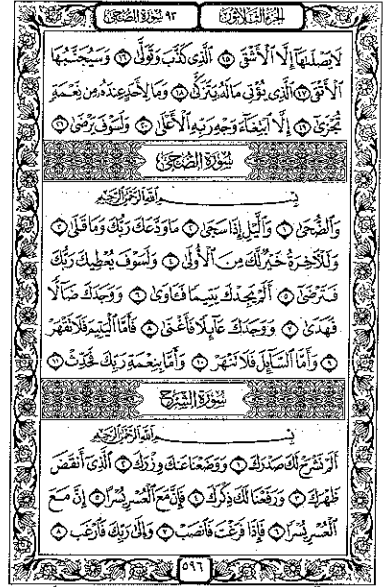 سورة الضحى ٩٣ الجزء الثلاثون
لَا يَصْلَىٰهَآ إِلَّا ٱلْأَشْقَى ١٥ ٱلَّذِى كَذَّبَ وَتَوَلَّىٰ ١٦ وَسَيُجَنَّبُهَا
ٱلْأَتْقَى ١٧ ٱلَّذِى يُؤْتِى مَالَهُۥ يَتَزَكَّىٰ ١٨ وَمَا لِأَحَدٍ عِندَهُۥ مِن نِّعْمَةٍ
تُجْزَىٰٓ ١٩ إِلَّا ٱبْتِغَآءَ وَجْهِ رَبِّهِ ٱلْأَعْلَىٰ ٢٠ وَلَسَوْفَ يَرْضَىٰ ٢١
سُورَةُ الضُّحَى
بِسْمِ ٱللَّهِ ٱلرَّحْمَٰنِ ٱلرَّحِيمِ
وَٱلضُّحَىٰ ١ وَٱلَّيْلِ إِذَا سَجَىٰ ٢ مَا وَدَّعَكَ رَبُّكَ وَمَا قَلَىٰ ٣
وَلَلْـَٔاخِرَةُ خَيْرٌ لَّكَ مِنَ ٱلْأُولَىٰ ٤ وَلَسَوْفَ يُعْطِيكَ رَبُّكَ
فَتَرْضَىٰٓ ٥ أَلَمْ يَجِدْكَ يَتِيمًا فَـَٔاوَىٰ ٦ وَوَجَدَكَ ضَآلًّا
فَهَدَىٰ ٧ وَوَجَدَكَ عَآئِلًا فَأَغْنَىٰ ٨ فَأَمَّا ٱلْيَتِيمَ فَلَا تَقْهَرْ
٩ وَأَمَّا ٱلسَّآئِلَ فَلَا تَنْهَرْ ١٠ وَأَمَّا بِنِعْمَةِ رَبِّكَ فَحَدِّثْ ١١
سُورَةُ الشَّرْحِ
بِسْمِ ٱللَّهِ ٱلرَّحْمَٰنِ ٱلرَّحِيمِ
أَلَمْ نَشْرَحْ لَكَ صَدْرَكَ ١ وَوَضَعْنَا عَنكَ وِزْرَكَ ٢ ٱلَّذِىٓ أَنقَضَ
ظَهْرَكَ ٣ وَرَفَعْنَا لَكَ ذِكْرَكَ ٤ فَإِنَّ مَعَ ٱلْعُسْرِ يُسْرًا ٥ إِنَّ مَعَ
ٱلْعُسْرِ يُسْرًا ٦ فَإِذَا فَرَغْتَ فَٱنصَبْ ٧ وَإِلَىٰ رَبِّكَ فَٱرْغَب ٨
٥٩٦